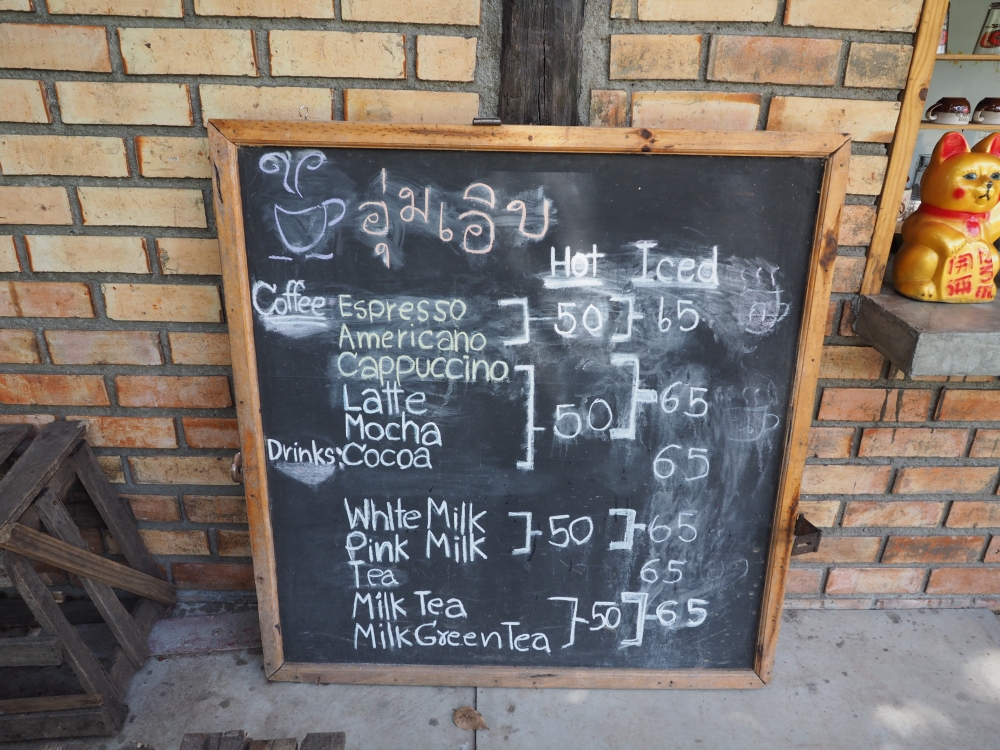 อุ่มเอิบ
Hot Iced
Coffee Espresso 50 65
Americano
Cappuccino
Latte 50 65
Mocha
Drinks: Cocoa 65
White Milk 50 65
Pink Milk
Tea 65
Milk Tea 50 65
Milk Green Tea